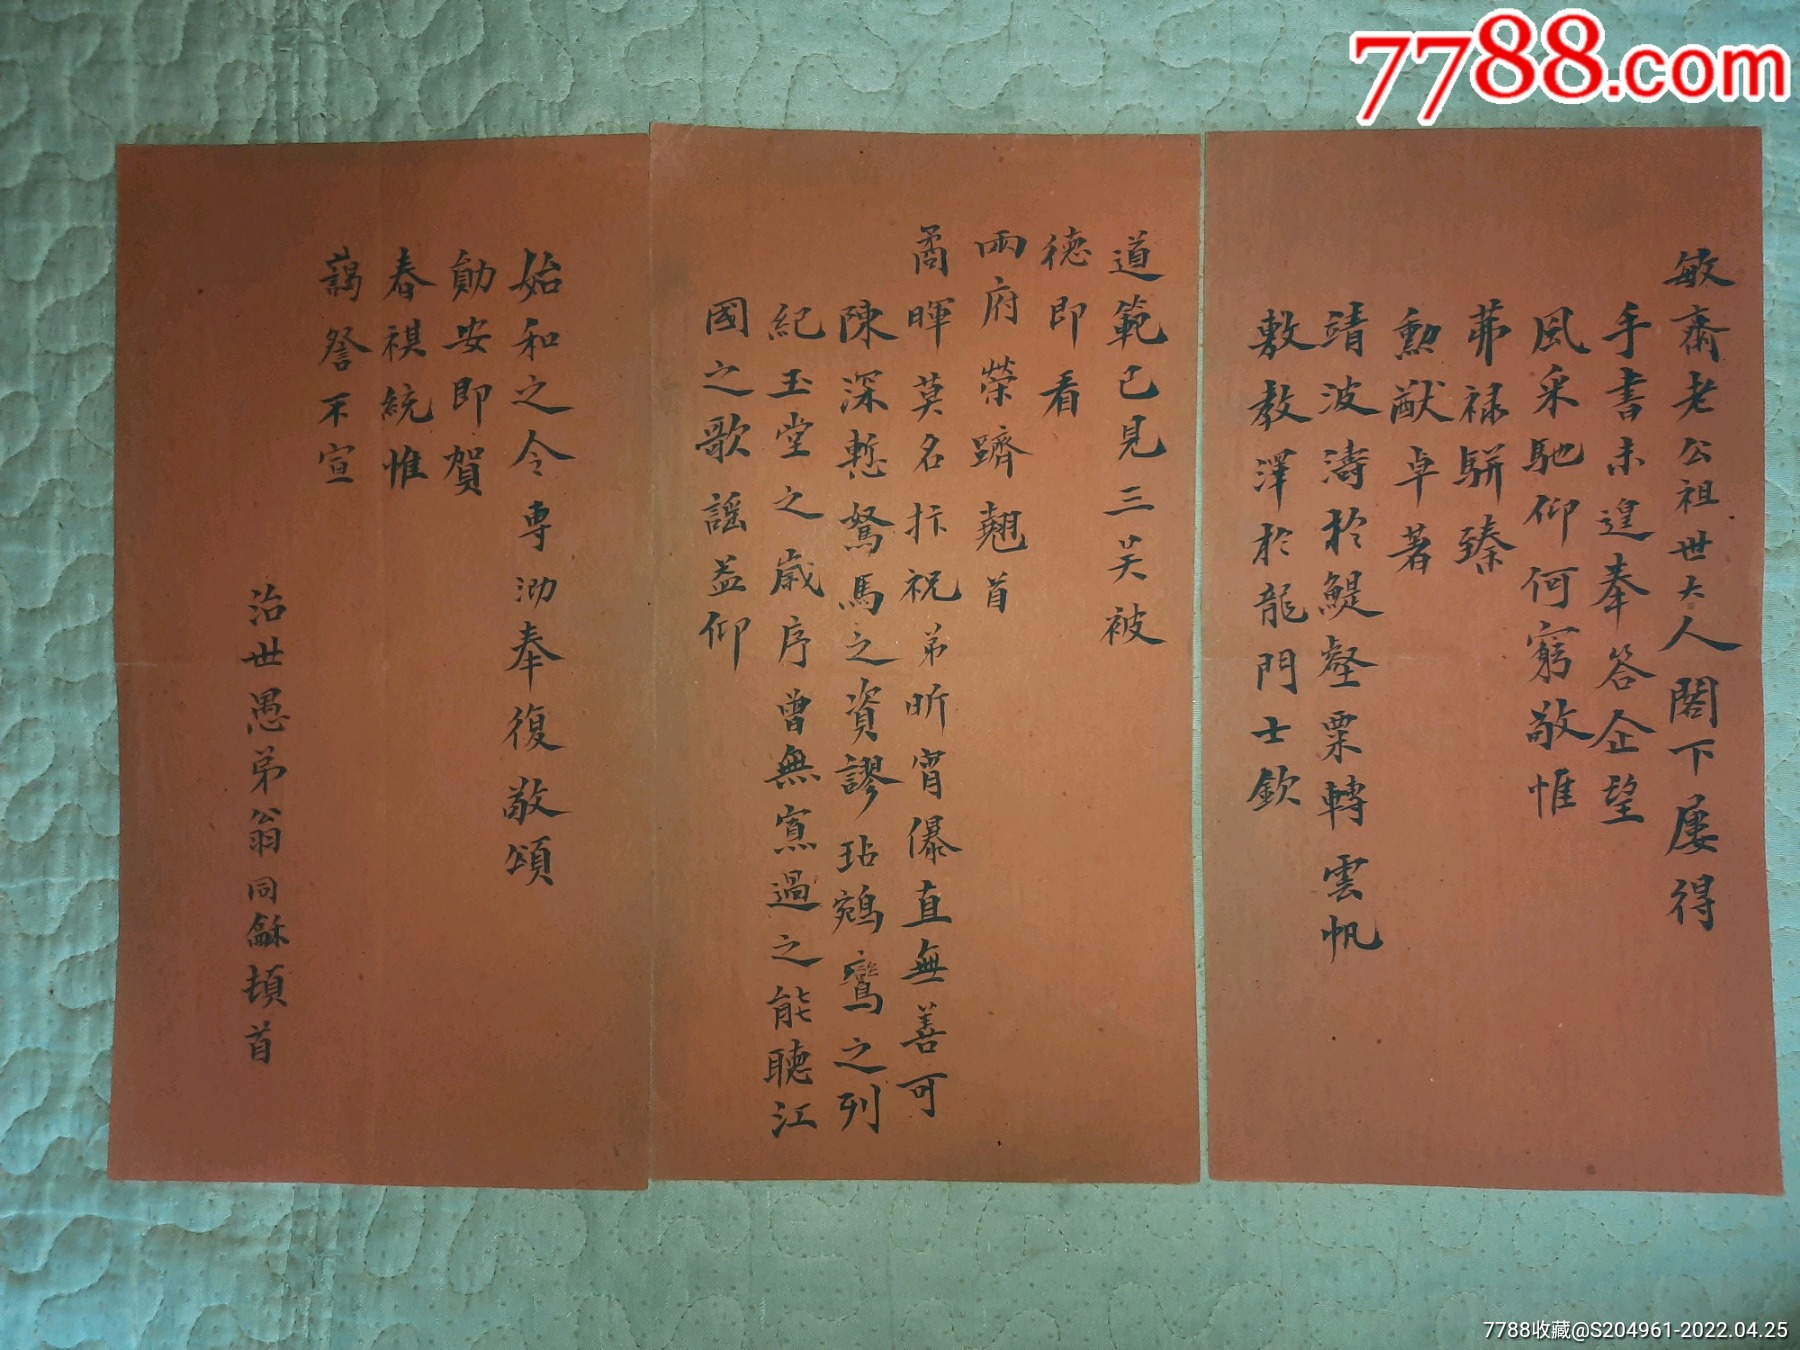 7788.com
敏齋老公祖世大人閣下屢得
手書未遑奉答企望
風采馳仰何窮敬惟
茀祿駢臻
勲猷卓著
靖波濤於鯷壑粟轉雲帆
敷教澤於龍門士欽
道範已見三吴被
德即看
兩府榮躋翹首
矞暉莫名抃祝弟昕宵儤直無善可
陳深慙駑馬之資謬玷鵷鸞之列
紀玉堂之歲序曾無寡過之能聽江
國之歌謡益仰
始和之令專泐奉復敬頌
勛安即賀
春祺統惟
藹詧不宣
治世愚弟翁同龢頓首
7788收藏@S204961-2022.04.25